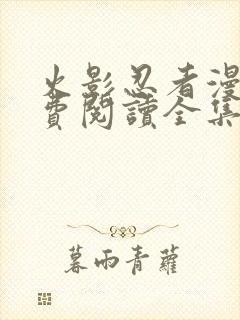 火影忍者漫
費閱讀全集
暮雨青蘿